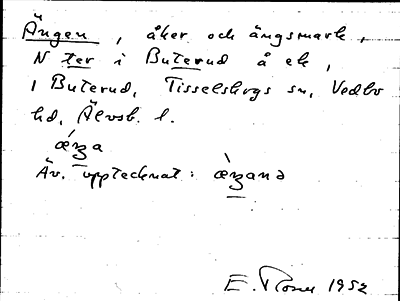 Ängen, åker och ängsmark,
N ter i Buterud å ek,
i Buterud, Tisselskogs sn, Vedbo
hd, Älvsb. l.
Äv. upptecknat:
E. 1952